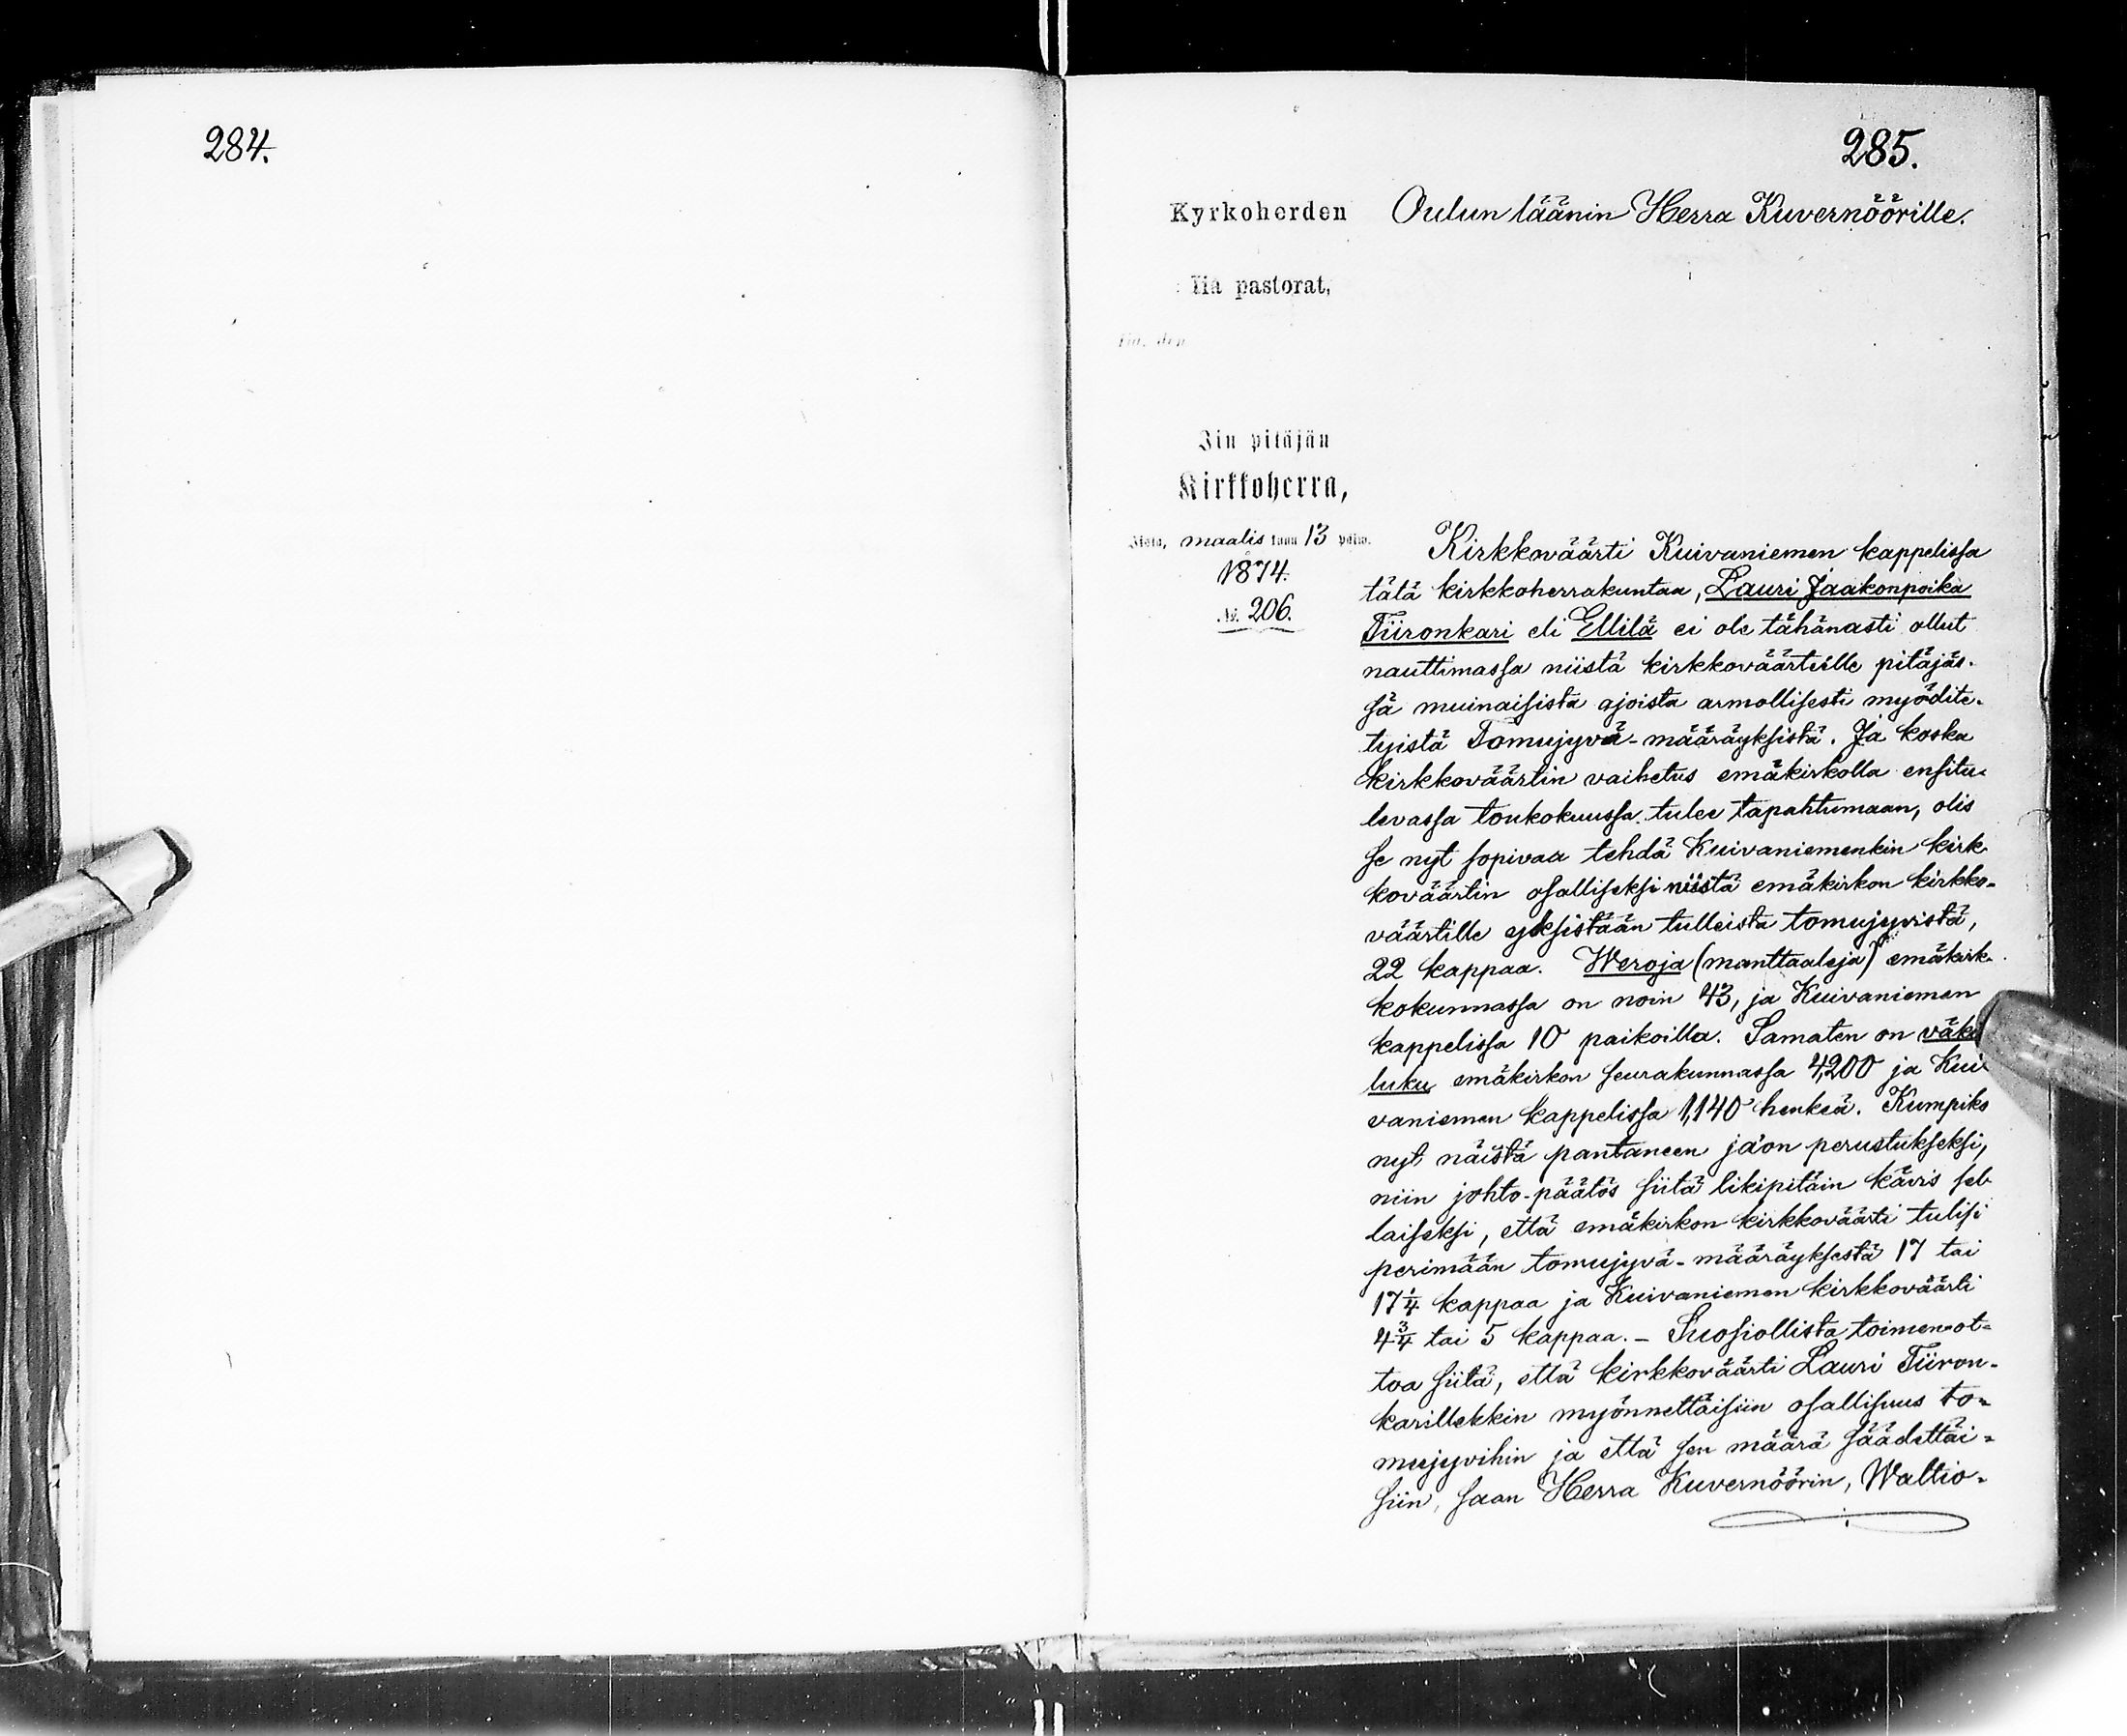 284.
285.
Kyrkoherden
Oulun läänin Herra Kuvernöörille.
Iia pastorat,
Iia, den
Iin pitäjän
Kirkkoherra,
Iistä, maalis kuun 13 päiw.
1874.
№ 206.
Kirkkoväärti Kuivaniemen kappelissa
tätä kirkkoherrakuntaa, Lauri Jaakonpoika
Tiironkari eli Ellilä ei ole tähänasti ollut
nauttimassa niistä kirkkoväärteille pitäjäs-
sä muinaisista ajoista armollisesti myödite-
tyistä Tomujyvä-määräyksistä. Ja koska
kirkkoväärtin vaihetus emäkirkolla ensitu-
levassa toukokuussa tulee tapahtumaan, olis
se nyt sopivaa tehdä Kuivaniemenkin kirk-
koväärtin osalliseksi niistä emäkirkon kirkko-
väärtille yksistään tulleista tomujyvistä,
22 kappaa. Weroja (manttaaleja) emäkirk-
kokunnassa on noin 43, ja Kuivaniemen
kappelissa 10 paikoilla. Samaten on väki
luku emäkirkon seurakunnassa 4,200 ja Kui-
vaniemen kappelissa 1,140 henkeä. Kumpiko
nyt näistä pantaneen ja'on perustukseksi,
niin johto-päätös siitä likipitäin kävis sel-
laiseksi, että emäkirkon kirkkoväärti tulisi
perimään tomujyvä-määräyksestä 17 tai
17 1/4 kappaa ja Kuivaniemen kirkkoväärti
4 3/4 tai 5 kappaa. - Suosiollista toimen-ot-
toa siitä, että kirkkoväärti Lauri Tiiron-
karillekkin myönnettäisiin osallisuus to-
mujyvihin ja että sen määrä säädettäi-
siin, saan Herra Kuvernöörin, Waltio-